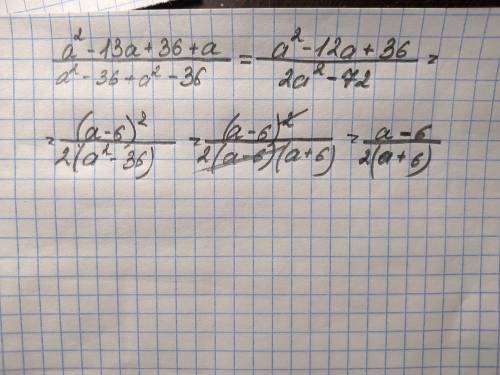 (a² - 13a + 36 + a)/(a² - 36 + a² - 36) = (a² - 12a + 36)/(2a² - 72) =
= (a - 6)²/(2(a² - 36)) = (a - 6)²/(2(a - 6)(a + 6)) = (a - 6)/(2(a + 6))